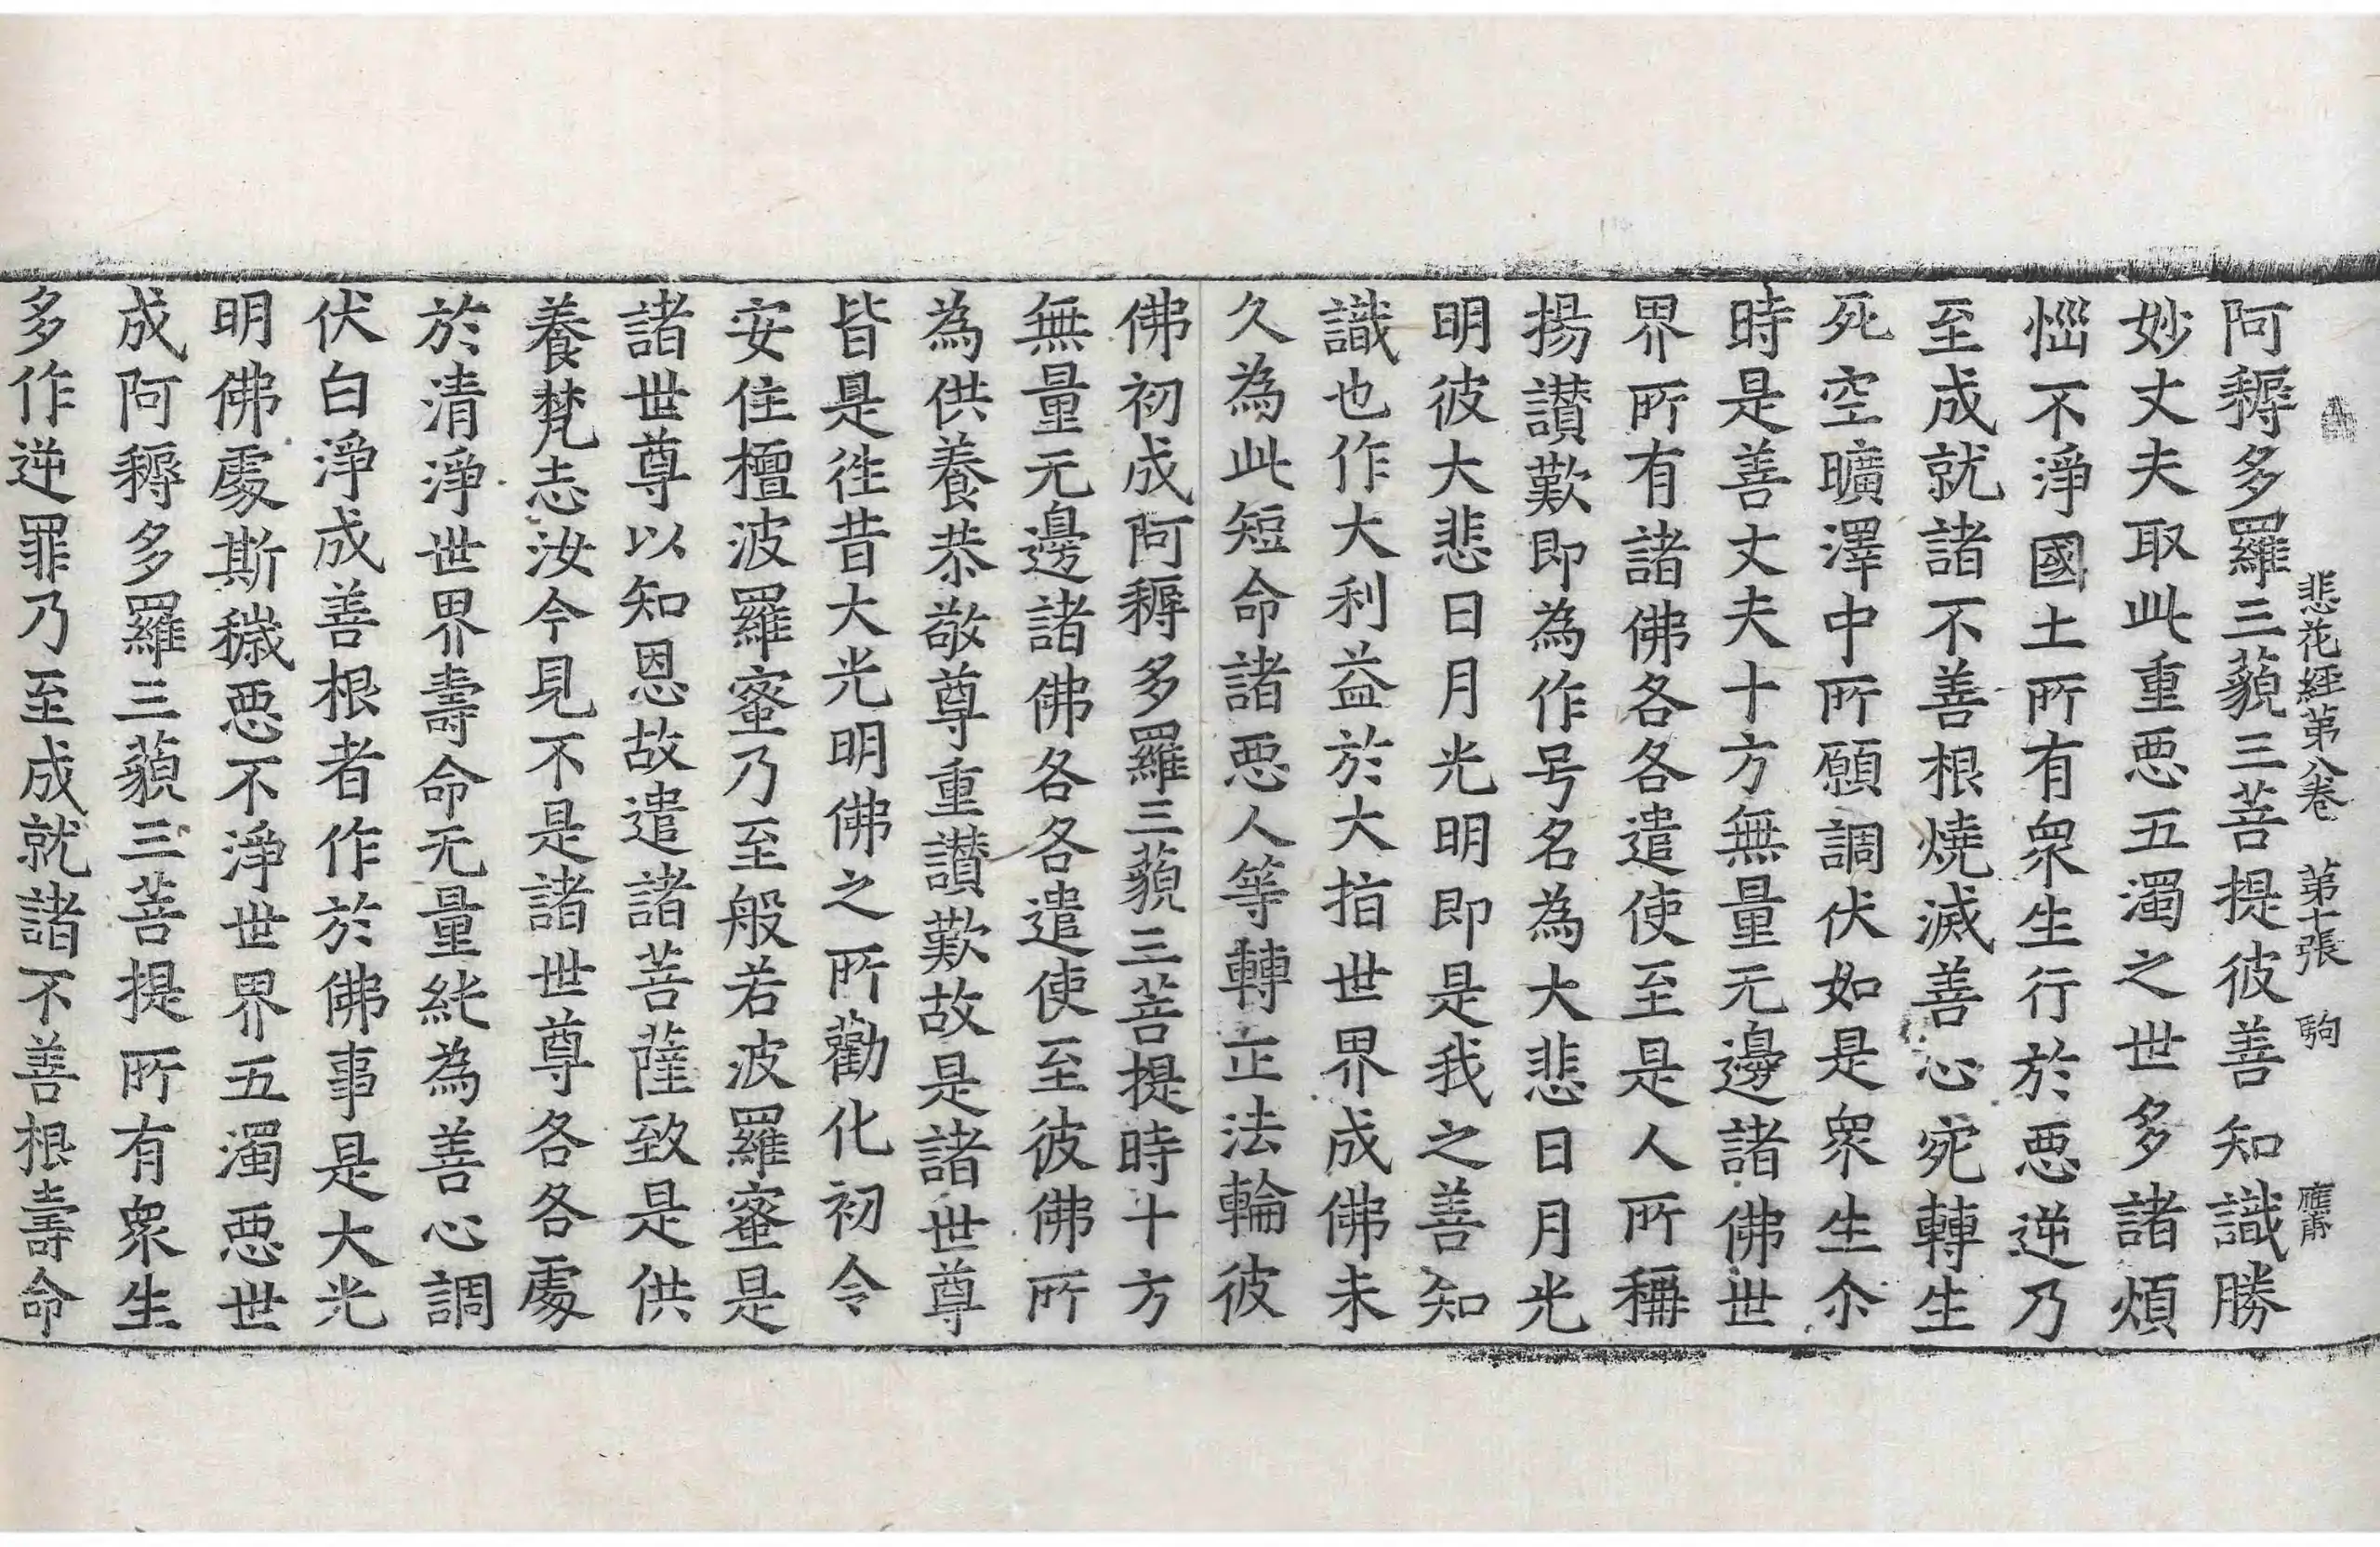 悲花經第八卷 第十張 駒
阿耨多羅三藐三菩提彼善知識勝
妙丈夫取此重惡五濁之世多諸煩
惱不淨國土所有衆生行於惡逆乃
至成就諸不善根燒滅善心宛轉生
死空曠澤中所願調伏如是衆生尒
時是善丈夫十方無量无邊諸佛世
界所有諸佛各各遣使至是人所稱
揚讃歎即為作号名為大悲日月光
明彼大悲日月光明即是我之善知
識也作大利益於大指世界成佛未
久為此短命諸惡人等轉正法輪彼
佛初成阿耨多羅三藐三菩提時十方
無量无邊諸佛各各遣使至彼佛所
為供養恭敬尊重讃歎故是諸世尊
皆是往昔大光明佛之所勸化初令
安住檀波羅蜜乃至般若波羅蜜是
諸世尊以知恩故遣諸菩薩致是供
養梵志汝今見不是諸世尊各各處
於清淨世界壽命无量純為善心調
伏白淨成善根者作於佛事是大光
明佛處斯穢惡不淨世界五濁惡世
成阿耨多羅三藐三菩提所有衆生
多作逆罪乃至成就諸不善根壽命